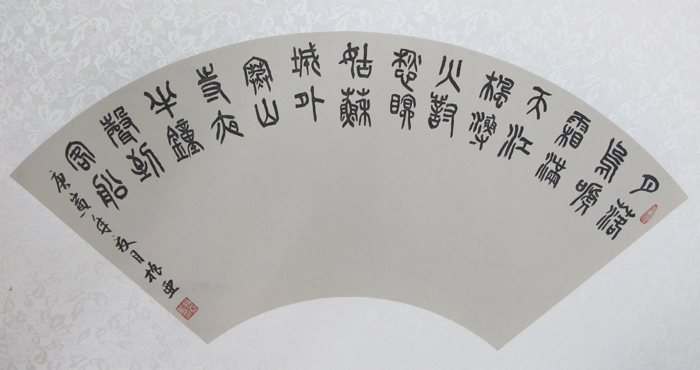 月落
烏啼
霜滿
天江
楓漁
火對
愁眠
姑蘇
城外
寒山
寺夜
半鐘
聲到
客船
庚寅年夏月